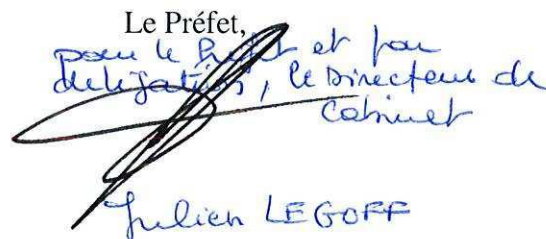 Le Préfet,
pour le Préfet et par
délégation, le Directeur de
Cabinet
Julien LEGOFF